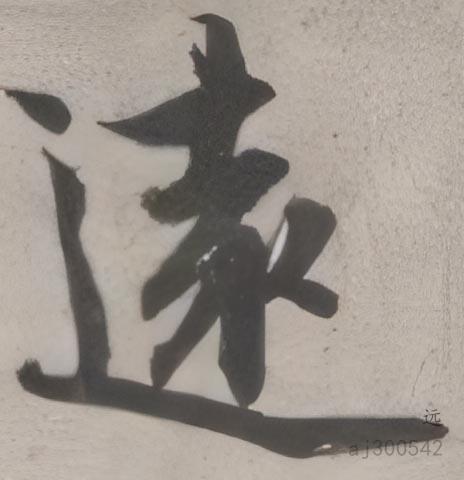 遠
远
aj300542